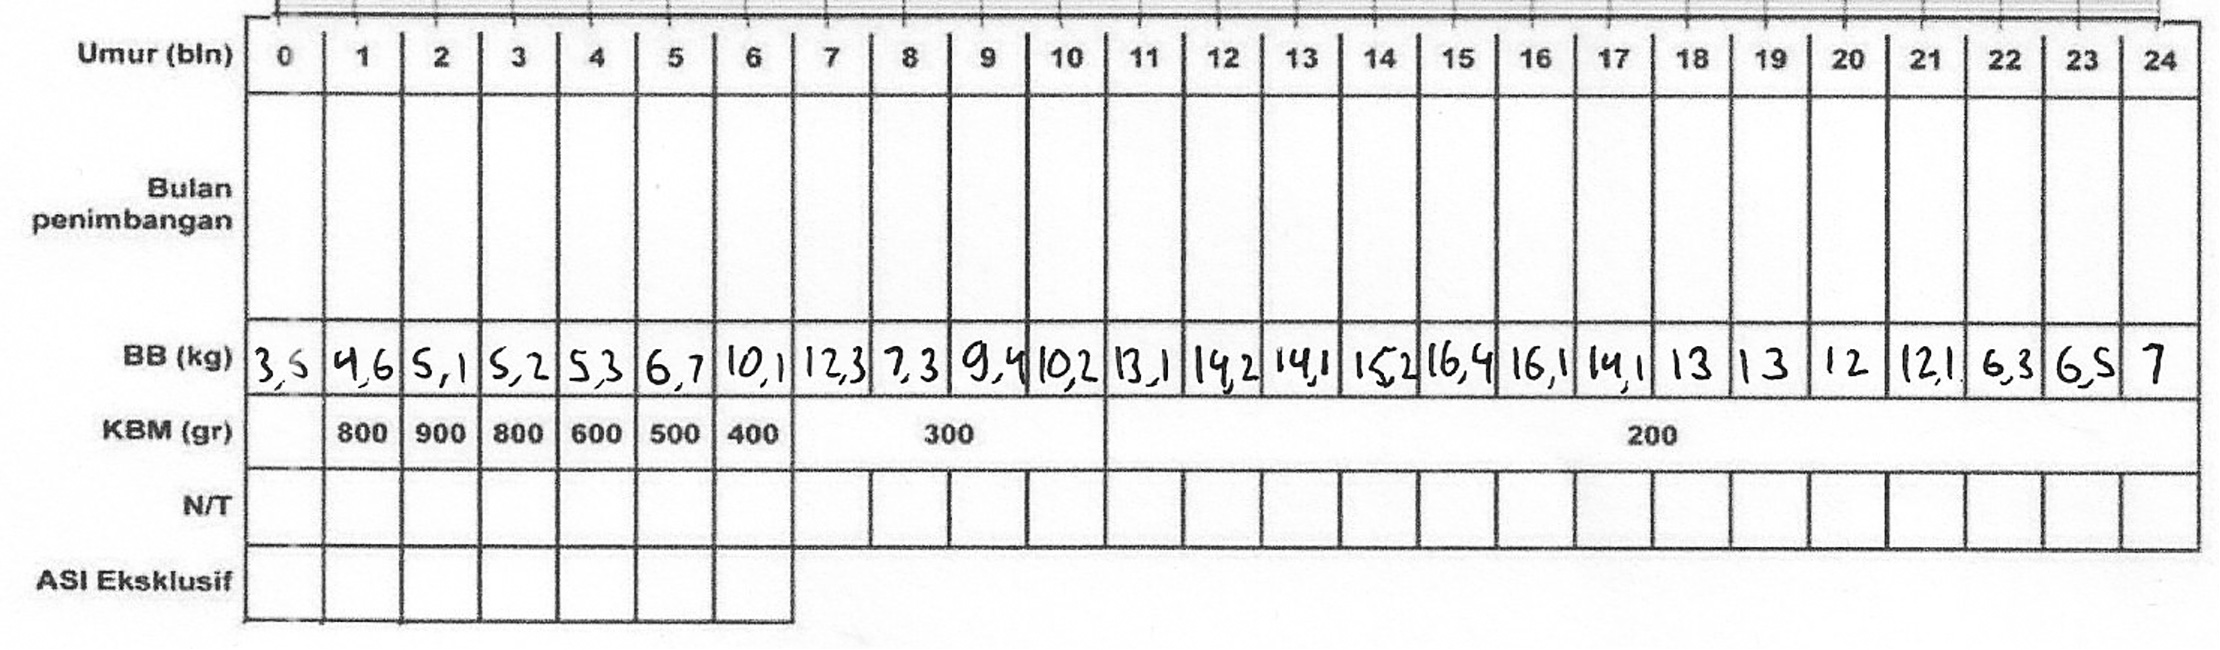 Umur (bln) 0 1 2 3 4 5 6 7 8 9 10 11 12 13 14 15 16 17 18 19 20 21 22 23 24
Bulan
penimbangan
BB (kg) 3,5 4,6 5,1 5,2 5,3 6,7 10,1 12,3 7,3 9,4 10,2 13,1 14,2 14,1 15,2 16,4 16,1 14,1 13 13 12 12,1 6,3 6,5 7
KBM (gr) 800 900 800 600 500 400 300 200
N/T
ASI Eksklusif